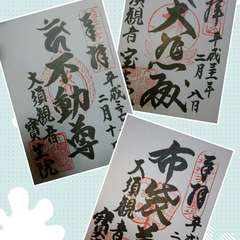 奉拝
平成三十
二月十
不動尊
大須観音
寶生院
拝
平成
二月八日
大悲殿
観音
宝生
奉拝
平成
布袋尊
大須観音
寶